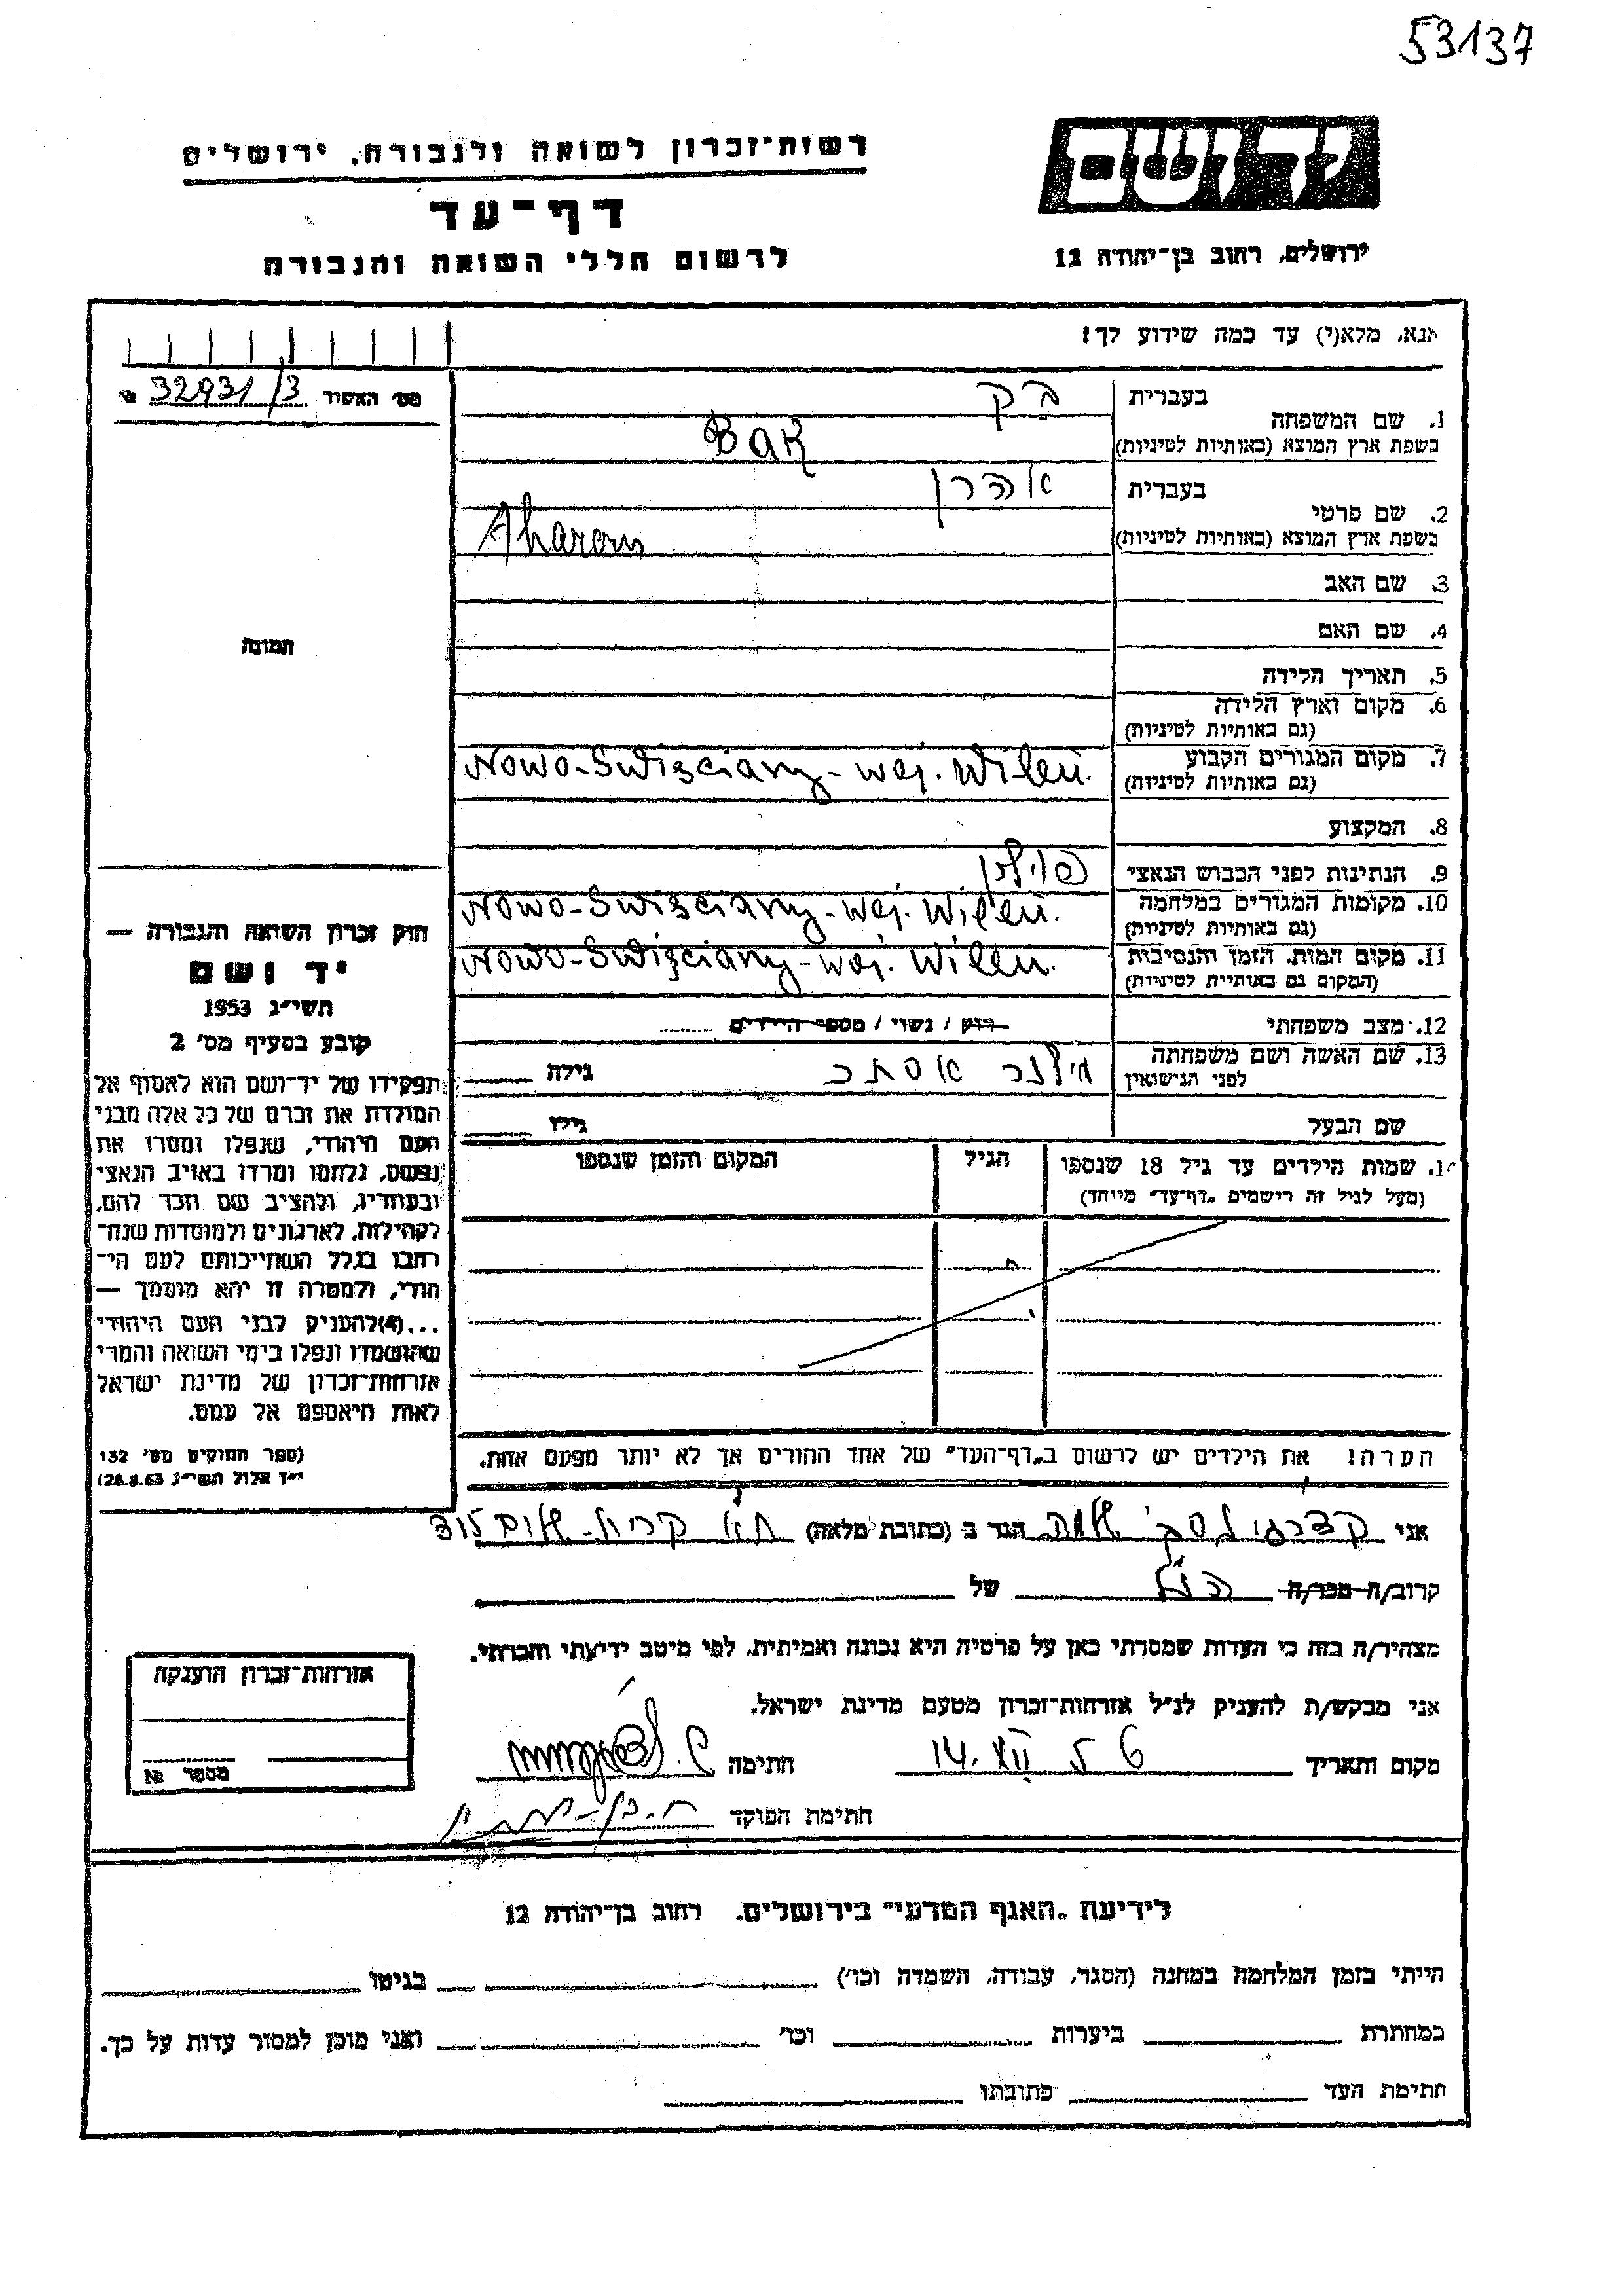 53137
יד ושם
ירושלים, רחוב בן־יהודה 12
רשות־זכרון לשואה ולגבורה, ירושלים
דף־עד
לרשום חללי השואה והגבורה
אנא, מלא(י) עד כמה שידוע לך!
מס׳ האשור 32931/3 №
בעברית בק
1. שם המשפחה
בשפת ארץ המוצא (באותיות לטיניות) Bak
בעברית אהרן
2. שם פרטי
בשפת ארץ המוצא (באותיות לטיניות) Aharon
3. שם האב
4. שם האם
תמונה
5. תאריך הלידה
6. מקום וארץ הלידה
(גם באותיות לטיניות)
7. מקום המגורים הקבוע Nowo-Swięciany-woj. Wileń.
(גם באותיות לטיניות)
8. המקצוע
9. הנתינות לפני הכבוש הנאצי פולין
10. מקומות המגורים במלחמה Nowo-Swięciany-woj. Wileń.
(גם באותיות לטיניות)
11. מקום המות, הזמן והנסיבות Nowo-Swięciany-woj. Wileń.
(המקום גם באותיות לטיניות)
12. מצב משפחתי רוק / נשוי / מספר הילדים
13. שם האשה ושם משפחתה אסתר גילה
לפני הנישואין
שם הבעל גילו
14. שמות הילדים עד גיל 18 שנספו הגיל המקום והזמן שנספו
(מעל לגיל זה רישמים „דף־עד״ מייחד)
הערה! את הילדים יש לרשום ב„דף־העד״ של אחד ההורים אך לא יותר מפעם אחת.
חוק זכרון השואה והגבורה —
יד ושם
תשי״ג 1953
קובע בסעיף מס׳ 2
תפקידו של יד־ושם הוא לאסוף אל
המולדת את זכרם של כל אלה מבני
העם היהודי, שנפלו ומסרו את
נפשם, נלחמו ומרדו באויב הנאצי
ובעוזריו, ולהציב שם וזכר להם,
לקהילות, לארגונים ולמוסדות שנח־
רבו בגלל השתייכותם לעם הי־
הודי, ולמטרה זו יהא מוסמך —
...(4)להעניק לבני העם היהודי
שהושמדו ונפלו בימי השואה והמרי
אזרחות־זכרון של מדינת ישראל
לאות היאספם אל עמם.
(ספר החוקים מס׳ 132
י״ז אלול תשי״ג 28.8.53)
אני הגר ב (כתובת מלאה)
קרוב/ה מכר/ה של
מצהיר/ה בזה כי העדות שמסרתי כאן על פרטיה היא נכונה ואמיתית, לפי מיטב ידיעתי והכרתי.
אני מבקש/ת להעניק לנ״ל אזרחות־זכרון מטעם מדינת ישראל.
מקום ותאריך 14. XII חתימה
חתימת הפוקד
אזרחות־זכרון הוענקה
מספר №
לידיעת „האגף המדעי״ בירושלים, רחוב בן־יהודה 12
הייתי בזמן המלחמה במחנה (הסגר, עבודה, השמדה וכו׳) בגיטו
במחתרת ביערות וכו׳ ואני מוכן למסור עדות על כך.
חתימת העד כתובתו